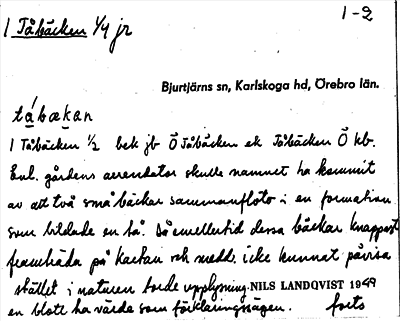 1 Tåbäcken 1/4 jr
1-2
Bjurtjärns sn, Karlskoga hd, Örebro län.
tåbækan
1 Tåbäcken 1/2 bek jb Ö Tåbäcken ek Tåbäcken Ö kb.
Enl. gårdens arrendator skulle namnet ha kommit
av att två små bäckar sammanflöto i en formation
som bildade en tå. Då emellertid dessa bäckar knappast
framträda på kartan och medd. icke kunnat påvisa
stället i naturen torde upplysning
NILS LANDQVIST 1949
en blott ha värde som förklaringssägen. forts